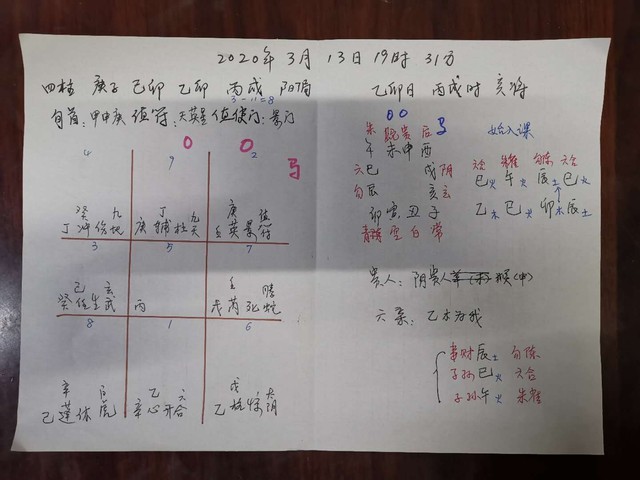 2020年 3月 13日 19时 31分
四柱 庚子 己卯 乙卯 丙戌 阳局
3-11=8
旬首:甲申庚 值符:天英星 值使门:景门
4 9 2
0 0 马
癸 九
丁 冲 伤 地
丁 九
庚 辅 杜 天
庚 值
壬 英 景 符
3 5 7
己 玄
癸 任 生 武
丙
壬 螣
戊 芮 死 蛇
8 1 6
辛 白
己 蓬 休 虎
乙 六
辛 心 开 合
戊 太
乙 柱 惊 阴
乙卯日 丙戌时 亥将
0 0
朱 蛇 贵 后 马
午 未 申 酉
六 巳 戌 阴
勾 辰 亥 玄
卯 寅 丑 子
青 空 白 常
始入课
六合 朱雀 勾陈 六合
巳火 午火 辰土 巳火
乙木 巳火 卯木 辰土
贵人: 阴贵人 猴(申)
六亲: 乙木为我
妻财 辰土 勾陈
子孙 巳火 六合
子孙 午火 朱雀